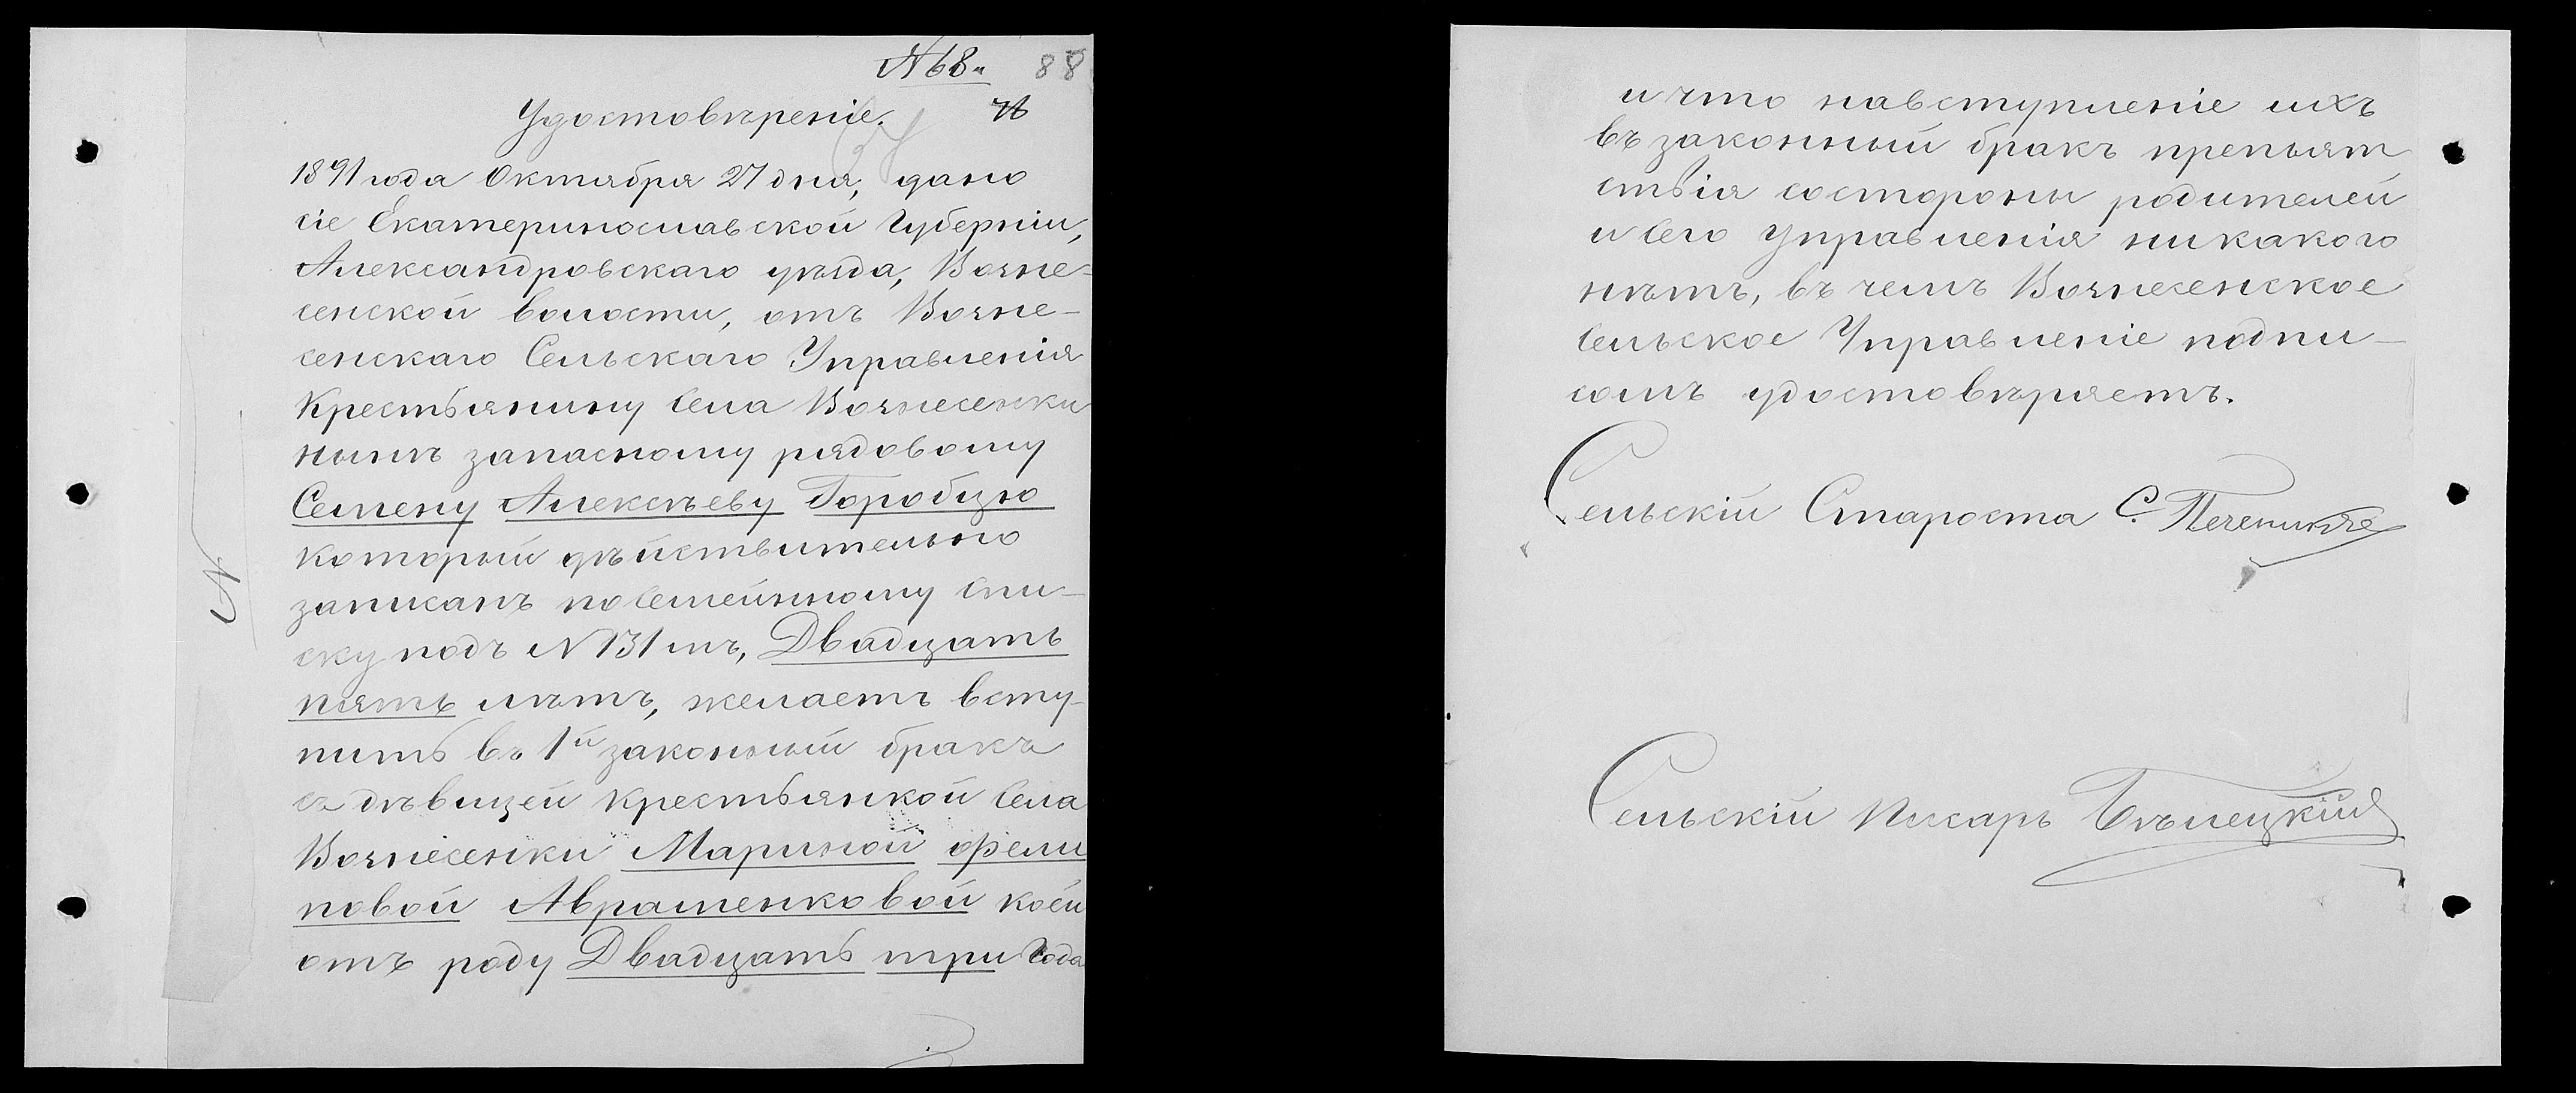 № 68. 88
Удостовѣреніе.
1891 года Октября 27 дня, дано
сіе Екатеринославской Губерніи,
Александровскаго уѣзда, Возне-
сенской волости, отъ Возне-
сенскаго Сельскаго Управленія
Крестьянину Села Вознесенки
нымъ запасному рядовому
Семену Алексѣеву Горобцю
который дѣйствительно
записанъ по Семейнному спи-
ску подъ № 131 мъ, Двадцать
пять лѣтъ, желаетъ всту-
пить въ 1й законный бракъ
съ дѣвицей крестьянкой Села
Вознесенки Мариной Фили
повой Авраменковой коей
отъ роду Двадцать три Года
и что навступленіе ихъ
въ законный бракъ препьят
ствія состороны родителей
и Сего Управленія никакого
нѣтъ, въ чемъ Вознесенское
Сельское Управленіе подпи-
сомъ удостовѣряетъ.
Сельскій Староста С.
Сельскій Писарь Бѣлецкій